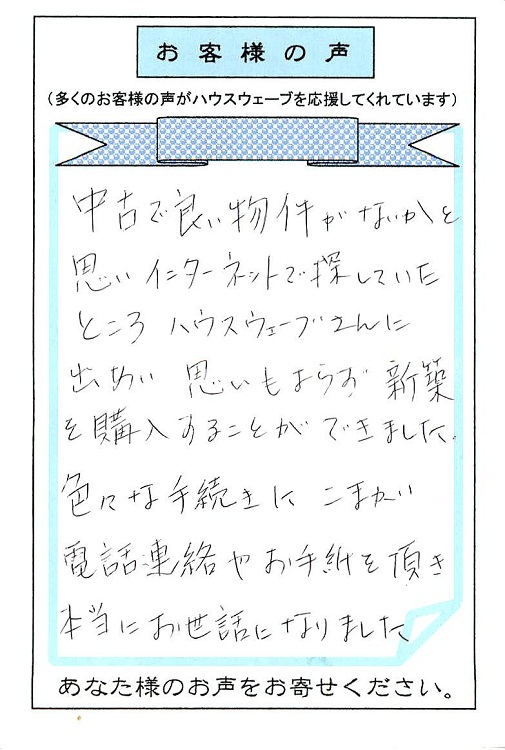 お客様の声
（多くのお客様の声がハウスウェーブを応援してくれています）
中古で良い物件がないかと
思いインターネットで探していた
ところ ハウスウェーブさんに
出あい 思いもよらず 新築
を購入することができました。
色々な手続きに こまかい
電話連絡やお手紙を頂き
本当にお世話になりました
あなた様のお声をお寄せください。